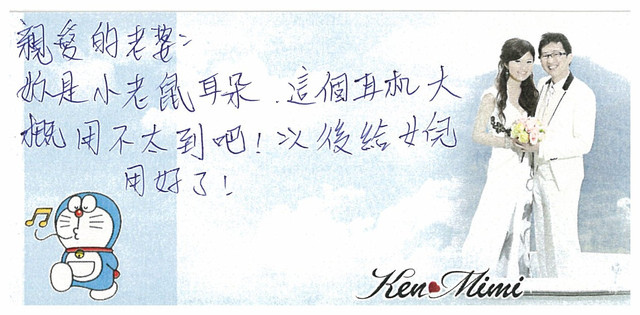 親愛的老婆:
妳是小老鼠耳朵.這個耳机大
概用不太到吧!以後給女兒
用好了!
Ken Mimi